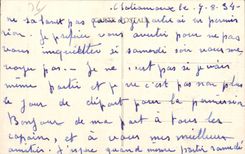 le 7.8.54.
ne sachant pas
sion. Je préfère vous avertir pour ne pas
vous inquiéter si samedi soir vous ne me
voyez pas. Je ne c'est pas si je vais
même partir et je ne c'est pas non plus
le jour de départ pour la permission
Bonjour de ma part à tous les
copains, et à vous mes meilleurs
amitiés. J'espère quand même partir